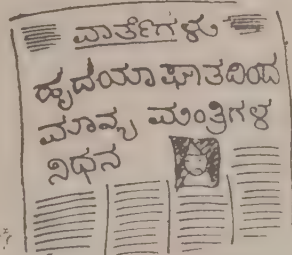 ವಾರ್ತೆಗಳು
ಹೃದಯಾಘಾತದಿಂದ
ಮಾನ್ಯ ಮಂತ್ರಿಗಳ
ನಿಧನ